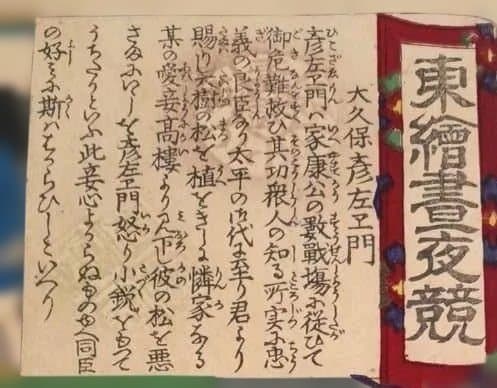 東繪晝夜競
大久保彦左エ門
彦左エ門ハ家康公の數戰場に從ひて
御危難を救ひ其功衆人の知る所実に忠
義の良臣なり太平の御代に至り君より
賜りし大樹の松を植をきしに憐家なる
某の愛妾高樓より見下し彼の松を悪
さまにいひしを彦左エ門怒り小銃をもつて
うちたりといふ此妾心よからぬものゆへ同臣
の好みに斯ははからひしといへり